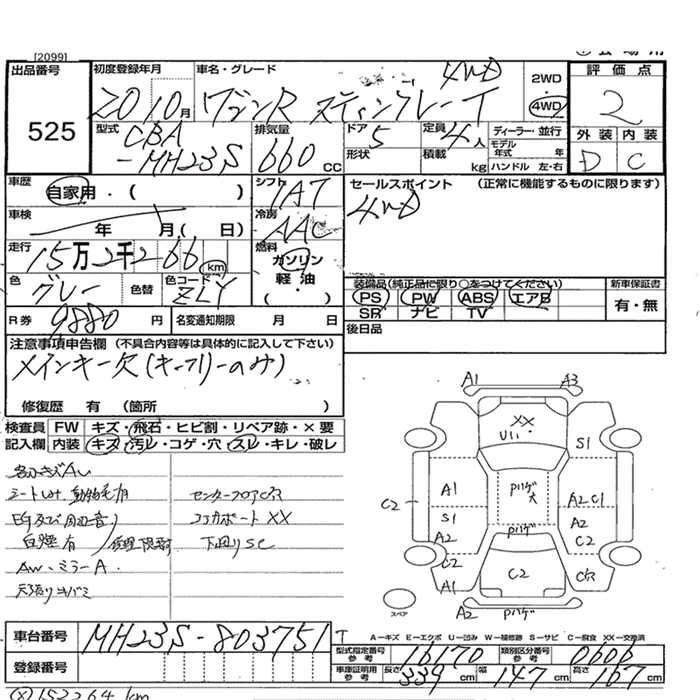 [2099]
出品番号
525
初度登録年月
20 10月
車名・グレード
ワゴンR スティングレー T
4WD
2WD
4WD
評価点
2
外装 内装
D C
型式
CBA
-MH23S
排気量
660 cc
ドア
5
形状
定員
4人
積載
kg
ディーラー・並行
モデル年式 年
ハンドル 左・右
車歴
自家用・( )
シフト
IAT
セールスポイント (正常に機能するものに限ります)
4WD
車検
年 月( 日)
冷房
AAC
走行
15万2千266 km
燃料
ガソリン
軽油
( ・ )
色
グレー
色替
色コード
ZLY
装備品(純正品に限り○をつけてください)
PS PW ABS エアB
SR ナビ TV
新車保証書
有・無
R券 9880 円
名変通知期限 月 日
後日品
注意事項申告欄 (不具合内容等は具体的に記入して下さい)
メインキー欠(キーフリーのみ)
修復歴 有 (箇所 )
検査員
記入欄
FW キズ・飛石・ヒビ割・リペア跡・×要
内装 キズ・汚レ・コゲ・穴・スレ・キレ・破レ
EG及び周辺音
白煙有
AW、ミラーA
センターフロアC穴
コアサポートXX
下回りSC
A1 A3
XX
U11
S1
A1
S1
A2
C2
Pハゲ大
A2 C1
A2
C2
Pハゲ
C2
A1
C2
C穴
A2 Pハゲ
スペア
車台番号
MH23S-803751
登録番号
A－キズ E－エクボ U－凹み W－補修跡 S－サビ C－腐食 XX－交換済
型式指定番号 参考
16170
類別区分番号 参考
0606
車庫証明用 参考
長さ 339 cm 幅 147 cm 高さ 167 cm
(X)152264km